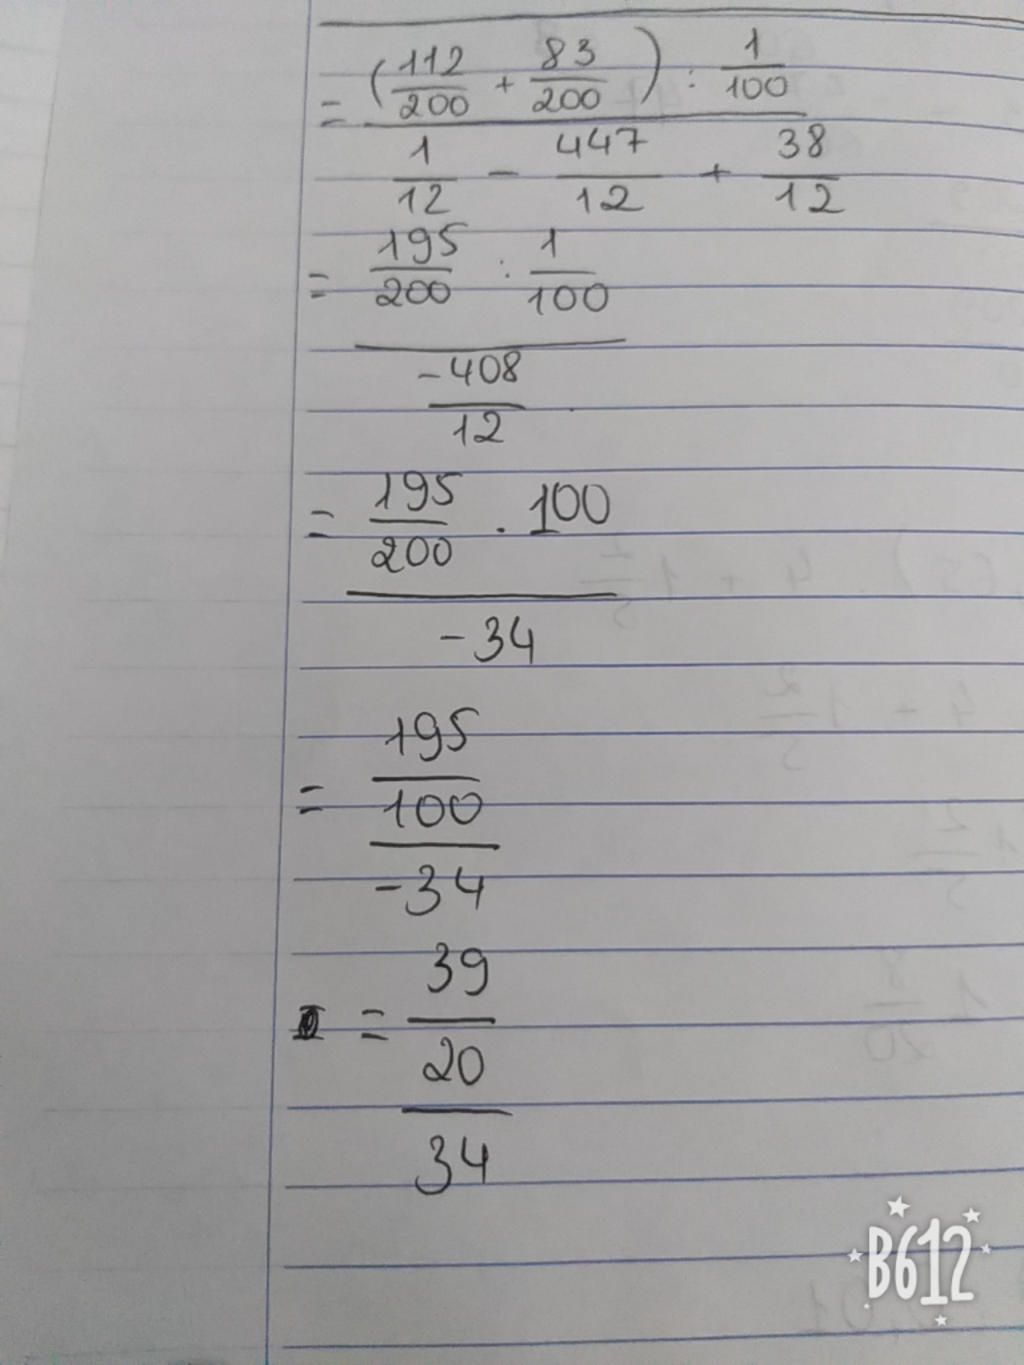 = (112/200 + 83/200) : 1/100
1/12 - 447/12 + 38/12
= 195/200 : 1/100
-408/12
= 195/200 . 100
-34
= 195/100
-34
= 39/20
34
B612